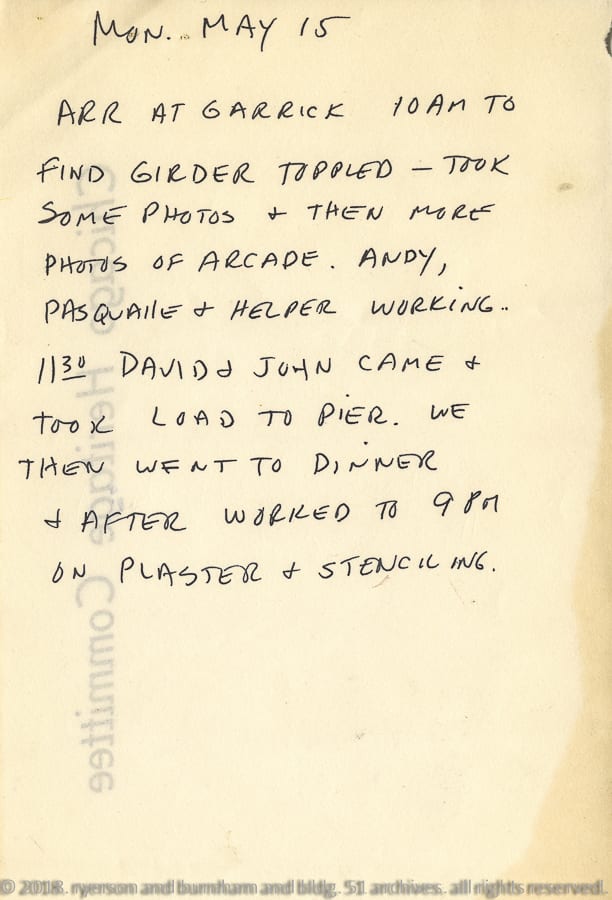 MON. MAY 15
ARR AT GARRICK 10AM TO
FIND GIRDER TOPPLED — TOOK
SOME PHOTOS & THEN MORE
PHOTOS OF ARCADE. ANDY,
PASQUAllE & HELPER WORKING..
11 30 DAVID & JOHN CAME &
TOOK LOAD TO PIER. WE
THEN WENT TO DINNER
& AFTER WORKED TO 9 PM
ON PLASTER & STENCILING.
Chicago Heritage Committee
© 2018. ryerson and burnham and bldg. 51 archives. all rights reserved.